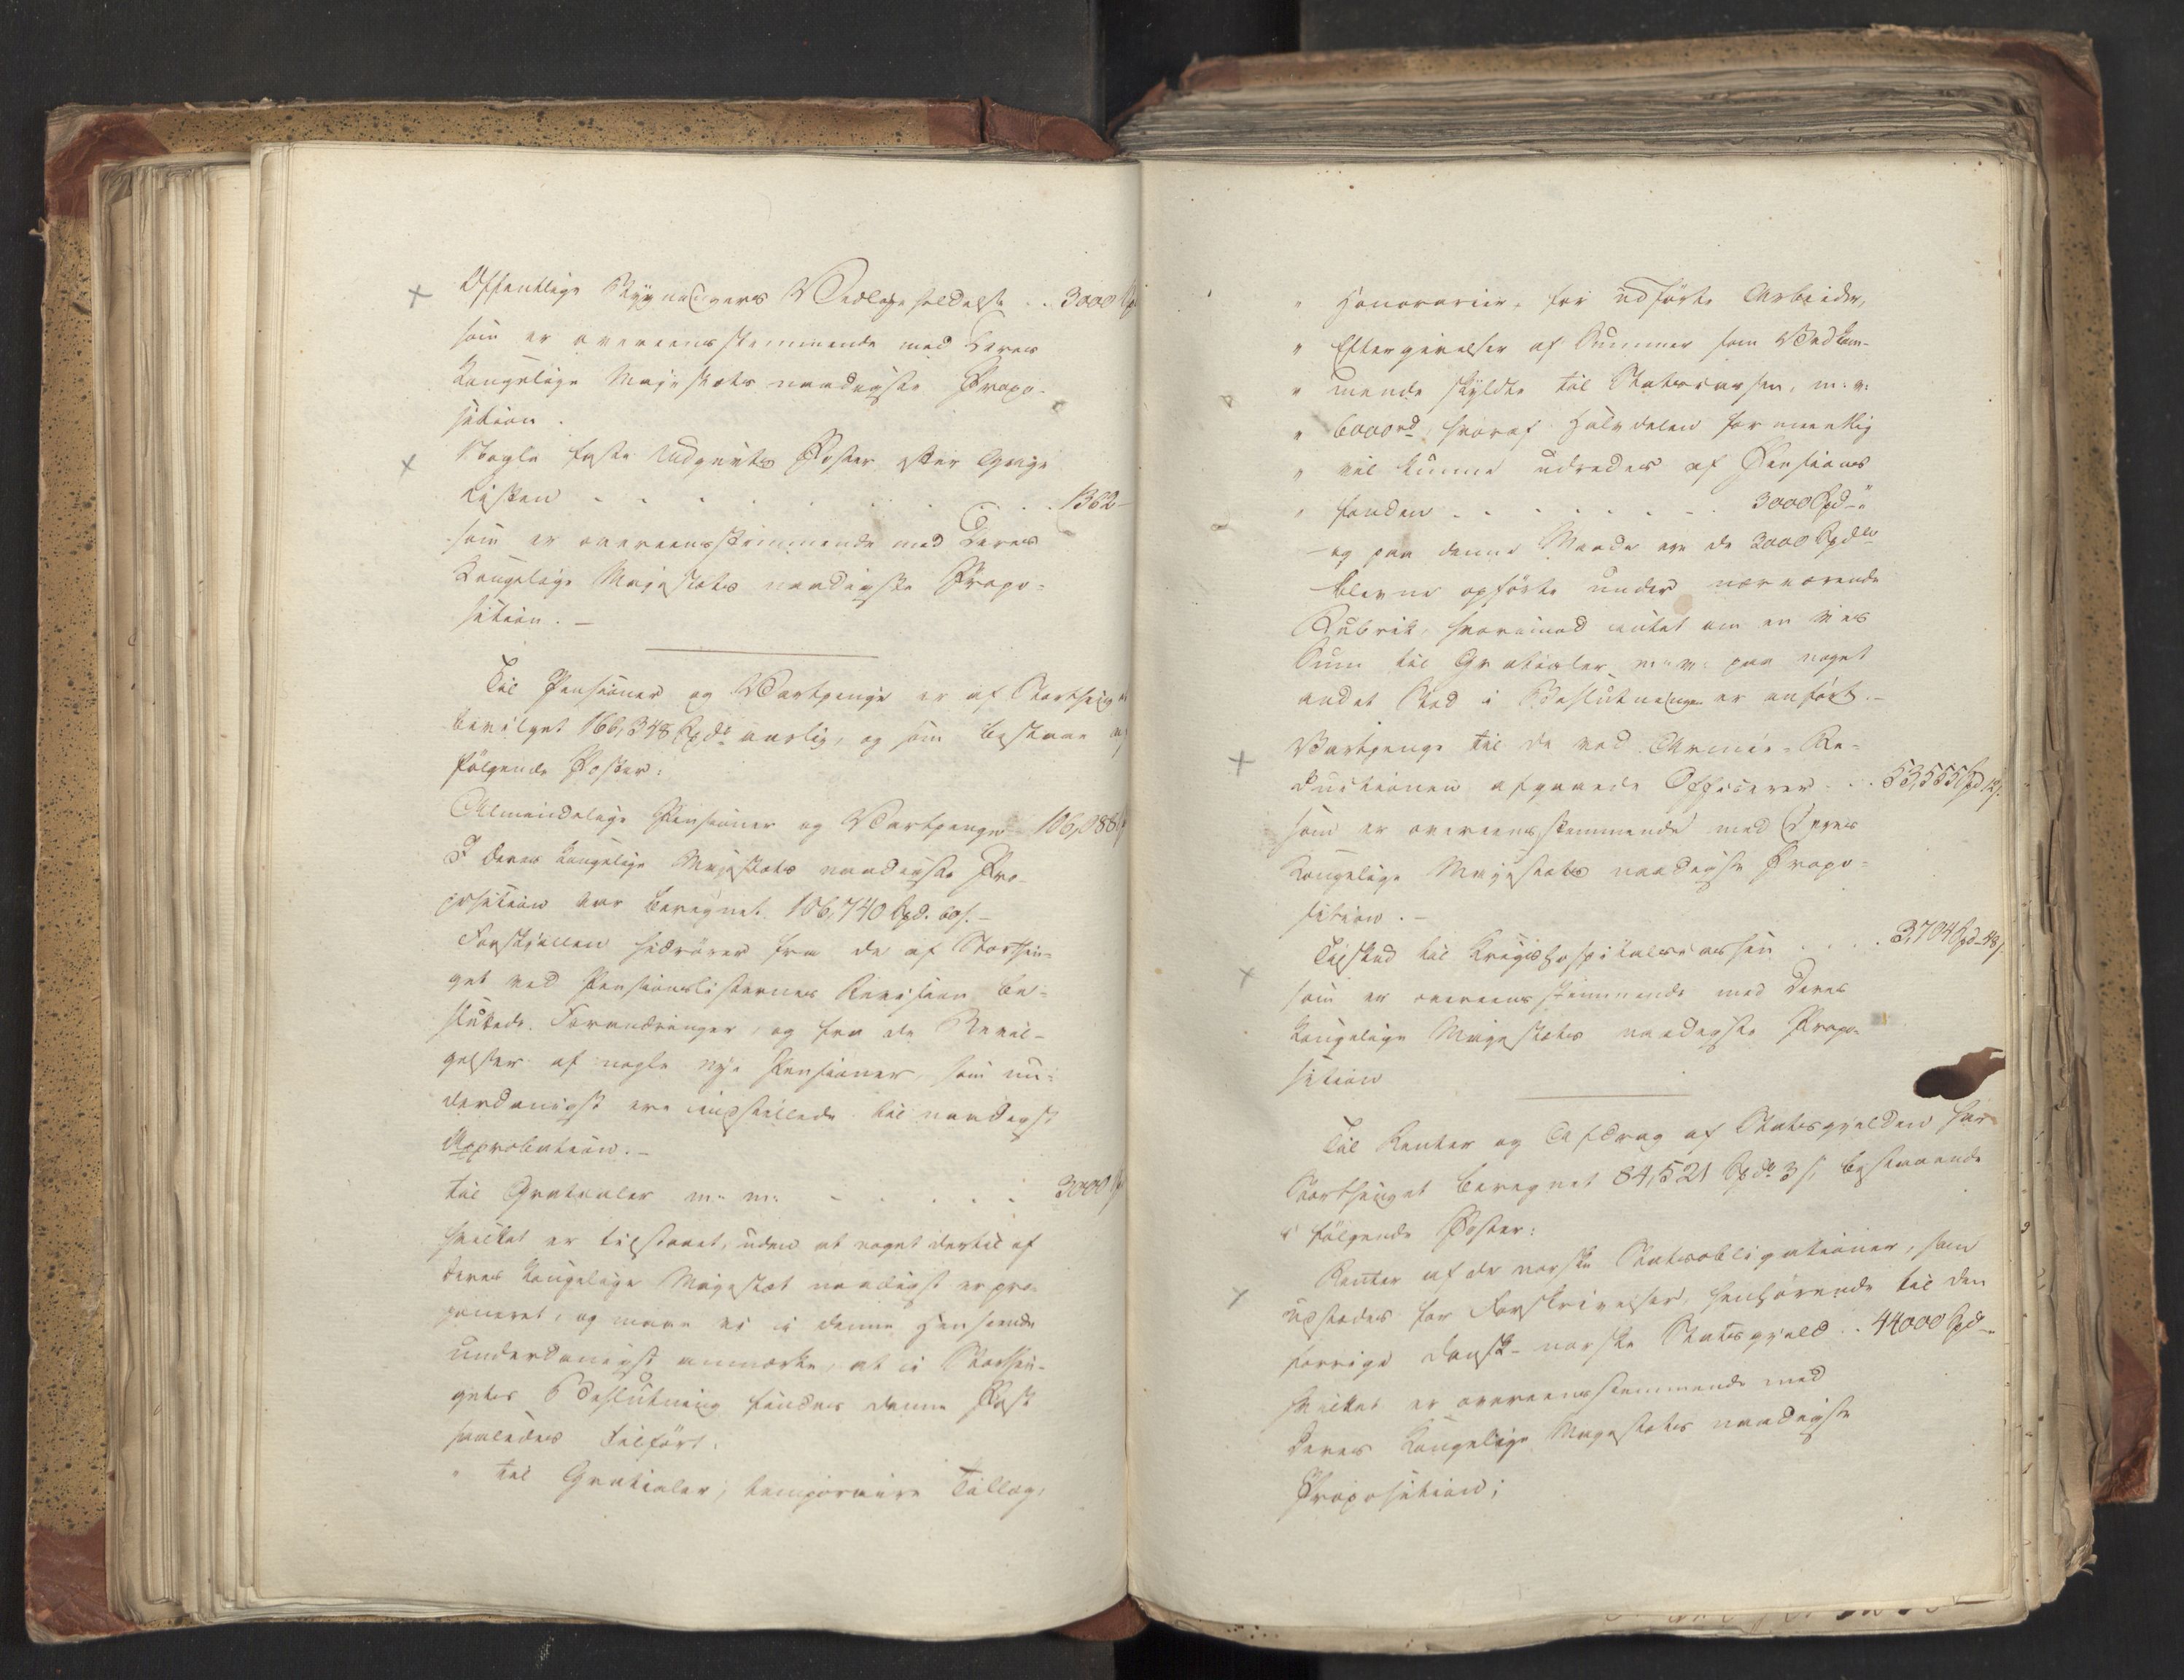 Offentlige Bygningers Vedligeholdelse . . 3000 Sp
som er overeensstemmende med Deres
Kongelige Majestæts naadigste Propo-
sition.
Nogle faste Udgivts Poster efter Gage
Listen . . . . . . . . 1362-
som er overeensstemmende med Deres
Kongelige Majestæts naadigste Propo-
sition. -
Til Pensioner og Vartpenge er af Storthinget
bevilget 166,348 Spd aarlig, og som bestaae af
følgende Poster:
Almindelige Pensioner og Vartpenge 106,088
I Deres Kongelige Majestæts naadigste Pro-
position var beregnet 106,740 Spd. 60 s. -
Forskjellen hidrører fra de af Storthin-
get ved Pensionslisternes Revision be-
sluttede Forandringer, og fra de Bevil-
gelser af nogle nye Pensioner, som un-
derdanigst ere indstillede til naadigst
Approbation. -
Til Gratialer m: m: - . . . . 3000 Sp
hvilket er tilstaaet, uden at noget dertil af
Deres Kongelige Majestæt naadigst er pro-
poneret, og maae vi i denne Henseende
underdanigst anmærke, at i Storthin-
gets Beslutning findes denne Post
saaledes tilført:
" til Gratialer, temporaire Tillæg,
" Honorarier, for udførte Arbeider,
" Eftergivelser af Summer som Vedkom-
" mende skyldte til Statscassen, m: v:
" 6000 rd, hvoraf Halvdelen formeentlig
" vil kunne udredes af Pensions
" fonden . . . . . . . . 3000 Spd - "
- og paa denne Maade ere de 3000 Spdlr
blevne opførte under nærværende
Rubrik, hvorimod intet om en vis
Sum til Gratialer m: v: paa noget
andet Sted i Beslutningen er anført. -
Vartpenge til de ved Armée-Re-
ductionen afgaaede Officerer . . . 53,555 Spd 12 s.
som er overeensstemmende med Deres
Kongelige Majestæts naadigste Propo-
sition. -
Tilskud til Krigshospitalscassen . . . . 3,704 Spd - 48 s.
som er overeensstemmende med Deres
Kongelige Majestæts naadigste Propo-
sition
Til Renter og Afdrag af Statsgjælden har
Storthinget beregnet 84,521 Spd 3 s, bestaaende
i følgende Poster:
Renter af de norske Statsobligationer, som
udstedes for Forskrivelser, henhørende til den
forrige dansk-norske Statsgjæld . . 44000 Spd -
hvilket er overeensstemmende med
Deres Kongelige Majestæts naadigste
Proposition;